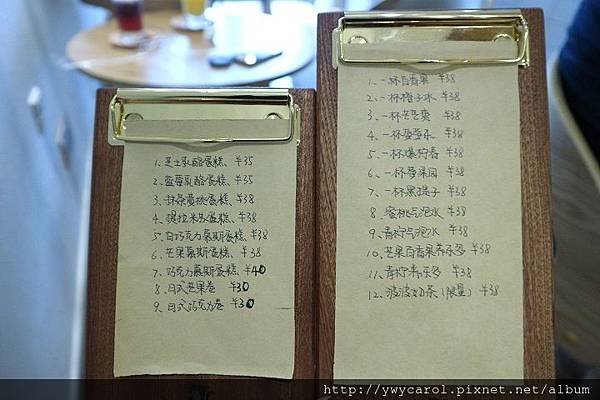 1. 芝士乳酪蛋糕、¥35
2. 蓝莓乳酪蛋糕、¥35
3. 抹茶慕斯蛋糕、¥38
4. 提拉米苏蛋糕、¥38
5. 白巧克力慕斯蛋糕、¥38
6. 芒果慕斯蛋糕、¥38
7. 巧克力慕斯蛋糕、¥40
8. 日式芒果卷 ¥30
9. 日式巧克力卷 ¥30
1. 一杯百香果 ¥38
2. 一杯橙子水 ¥38
3. 一杯芒芒爽 ¥38
4. 一杯莓莓乐 ¥38
5. 一杯爆柠春 ¥38
6. 一杯番果园 ¥38
7. 一杯黑提子 ¥38
8. 蜜桃气泡水 ¥38
9. 青柠气泡水 ¥38
10. 芒果百香果养乐多 ¥38
11. 青柠养乐多 ¥38
12. 波波奶茶（限量）¥38
http://ywycarol.pixnet.net/album